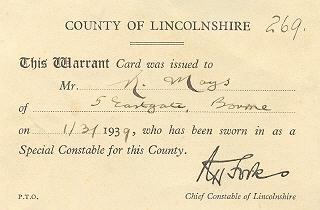 COUNTY OF LINCOLNSHIRE 269.
This Warrant Card was issued to
Mr. R. Mays
of 5 Eastgate, Bourne
on 1/3/1939, who has been sworn in as
Special Constable for this County.
P.T.O. Chief Constable of Lincolnshire